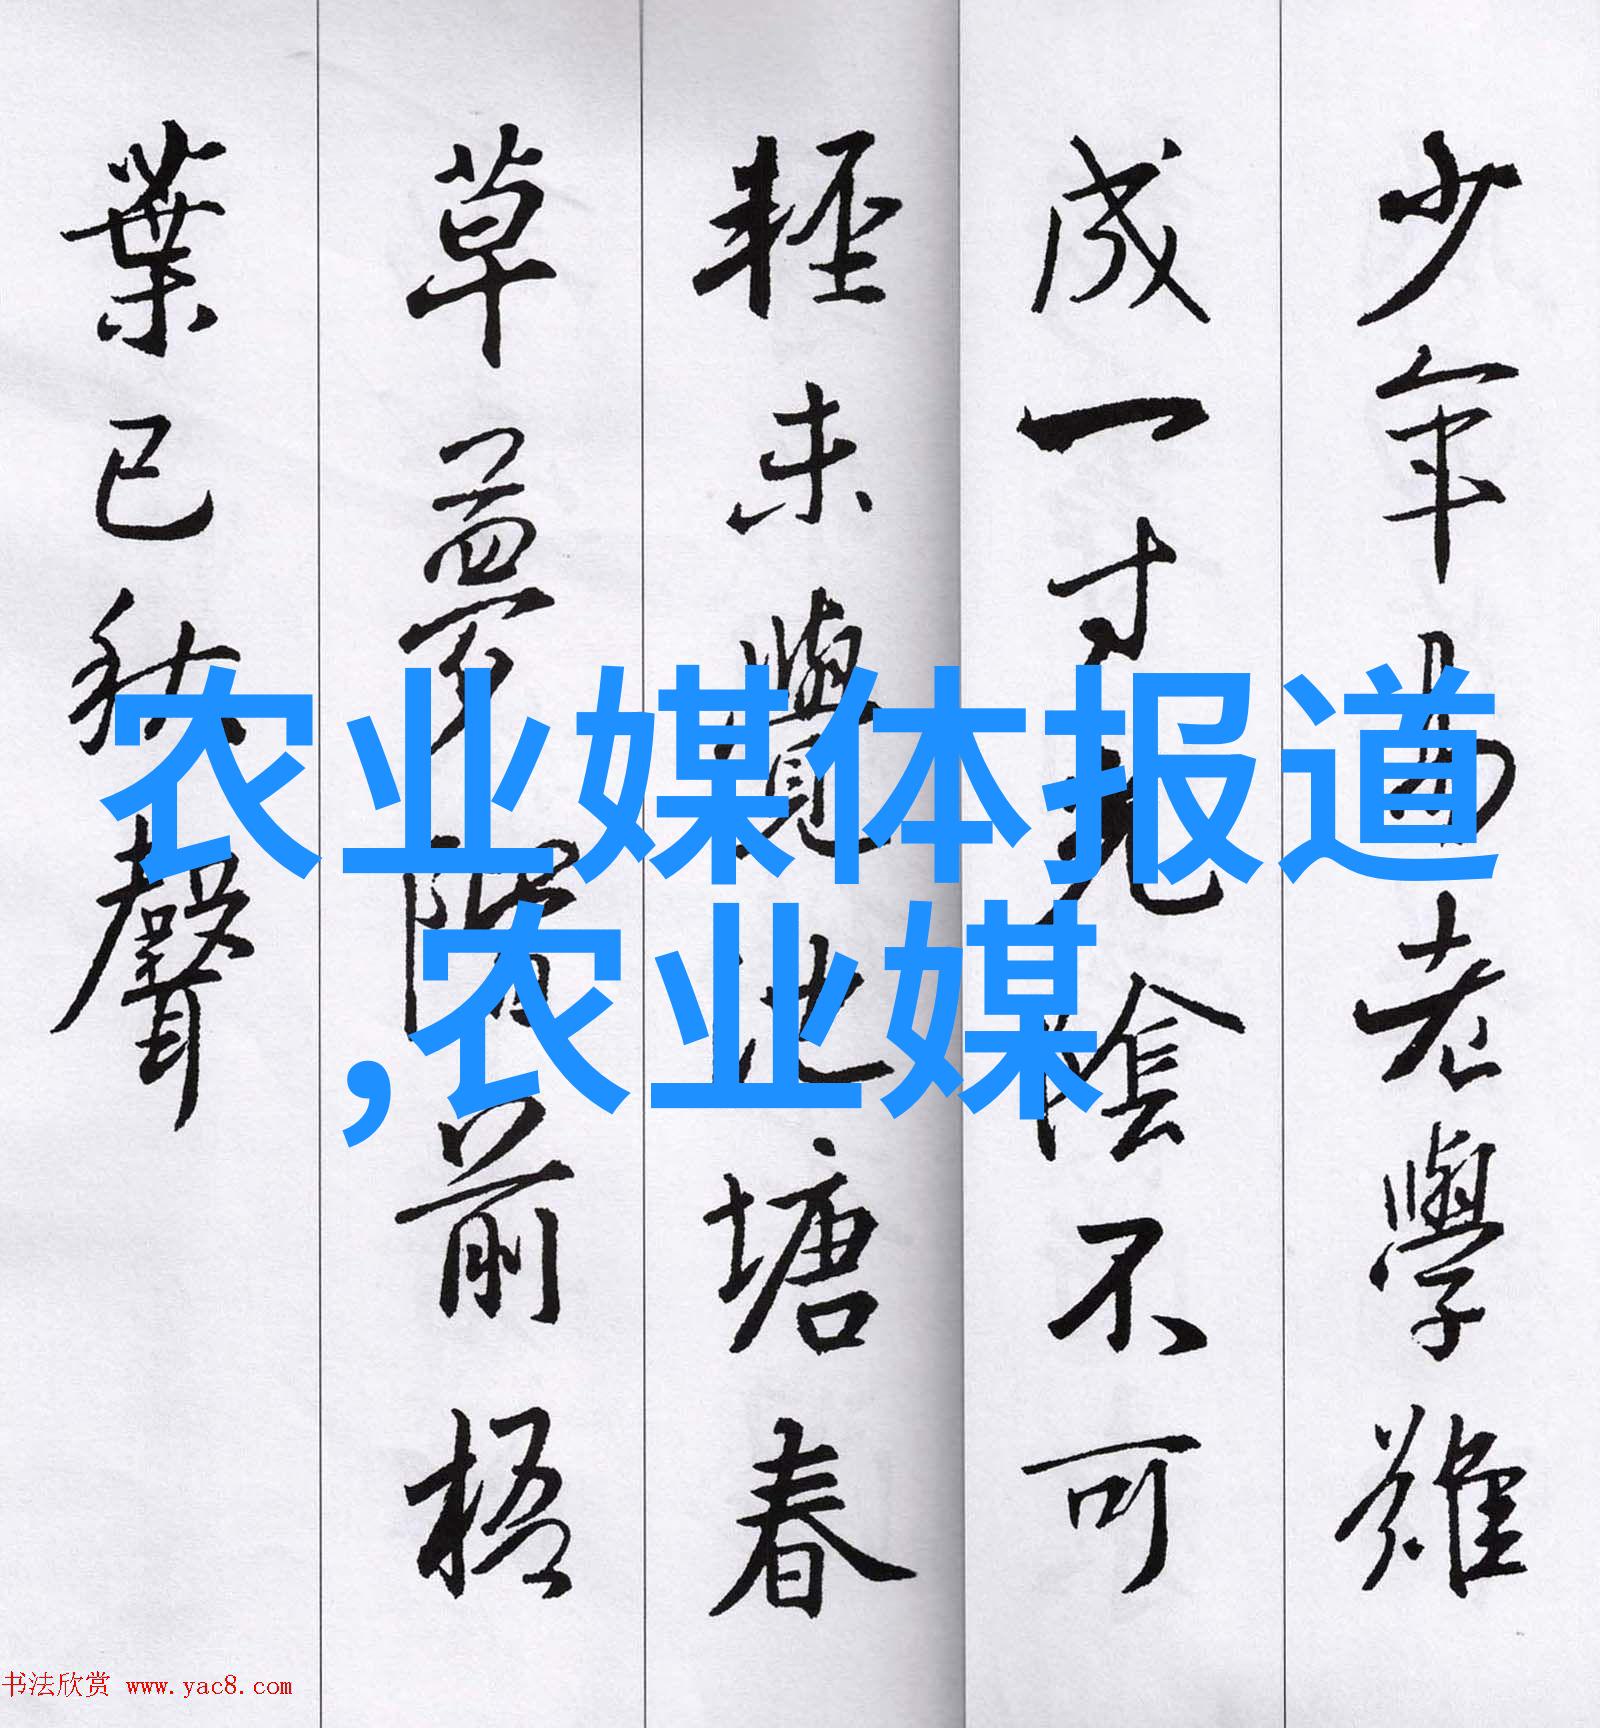 少年易老學難
成一寸光陰不可
輕未覺池塘春
草夢階前梧
葉已秋聲
农业媒体报道
,农业媒
书法欣赏 www.yac8.com